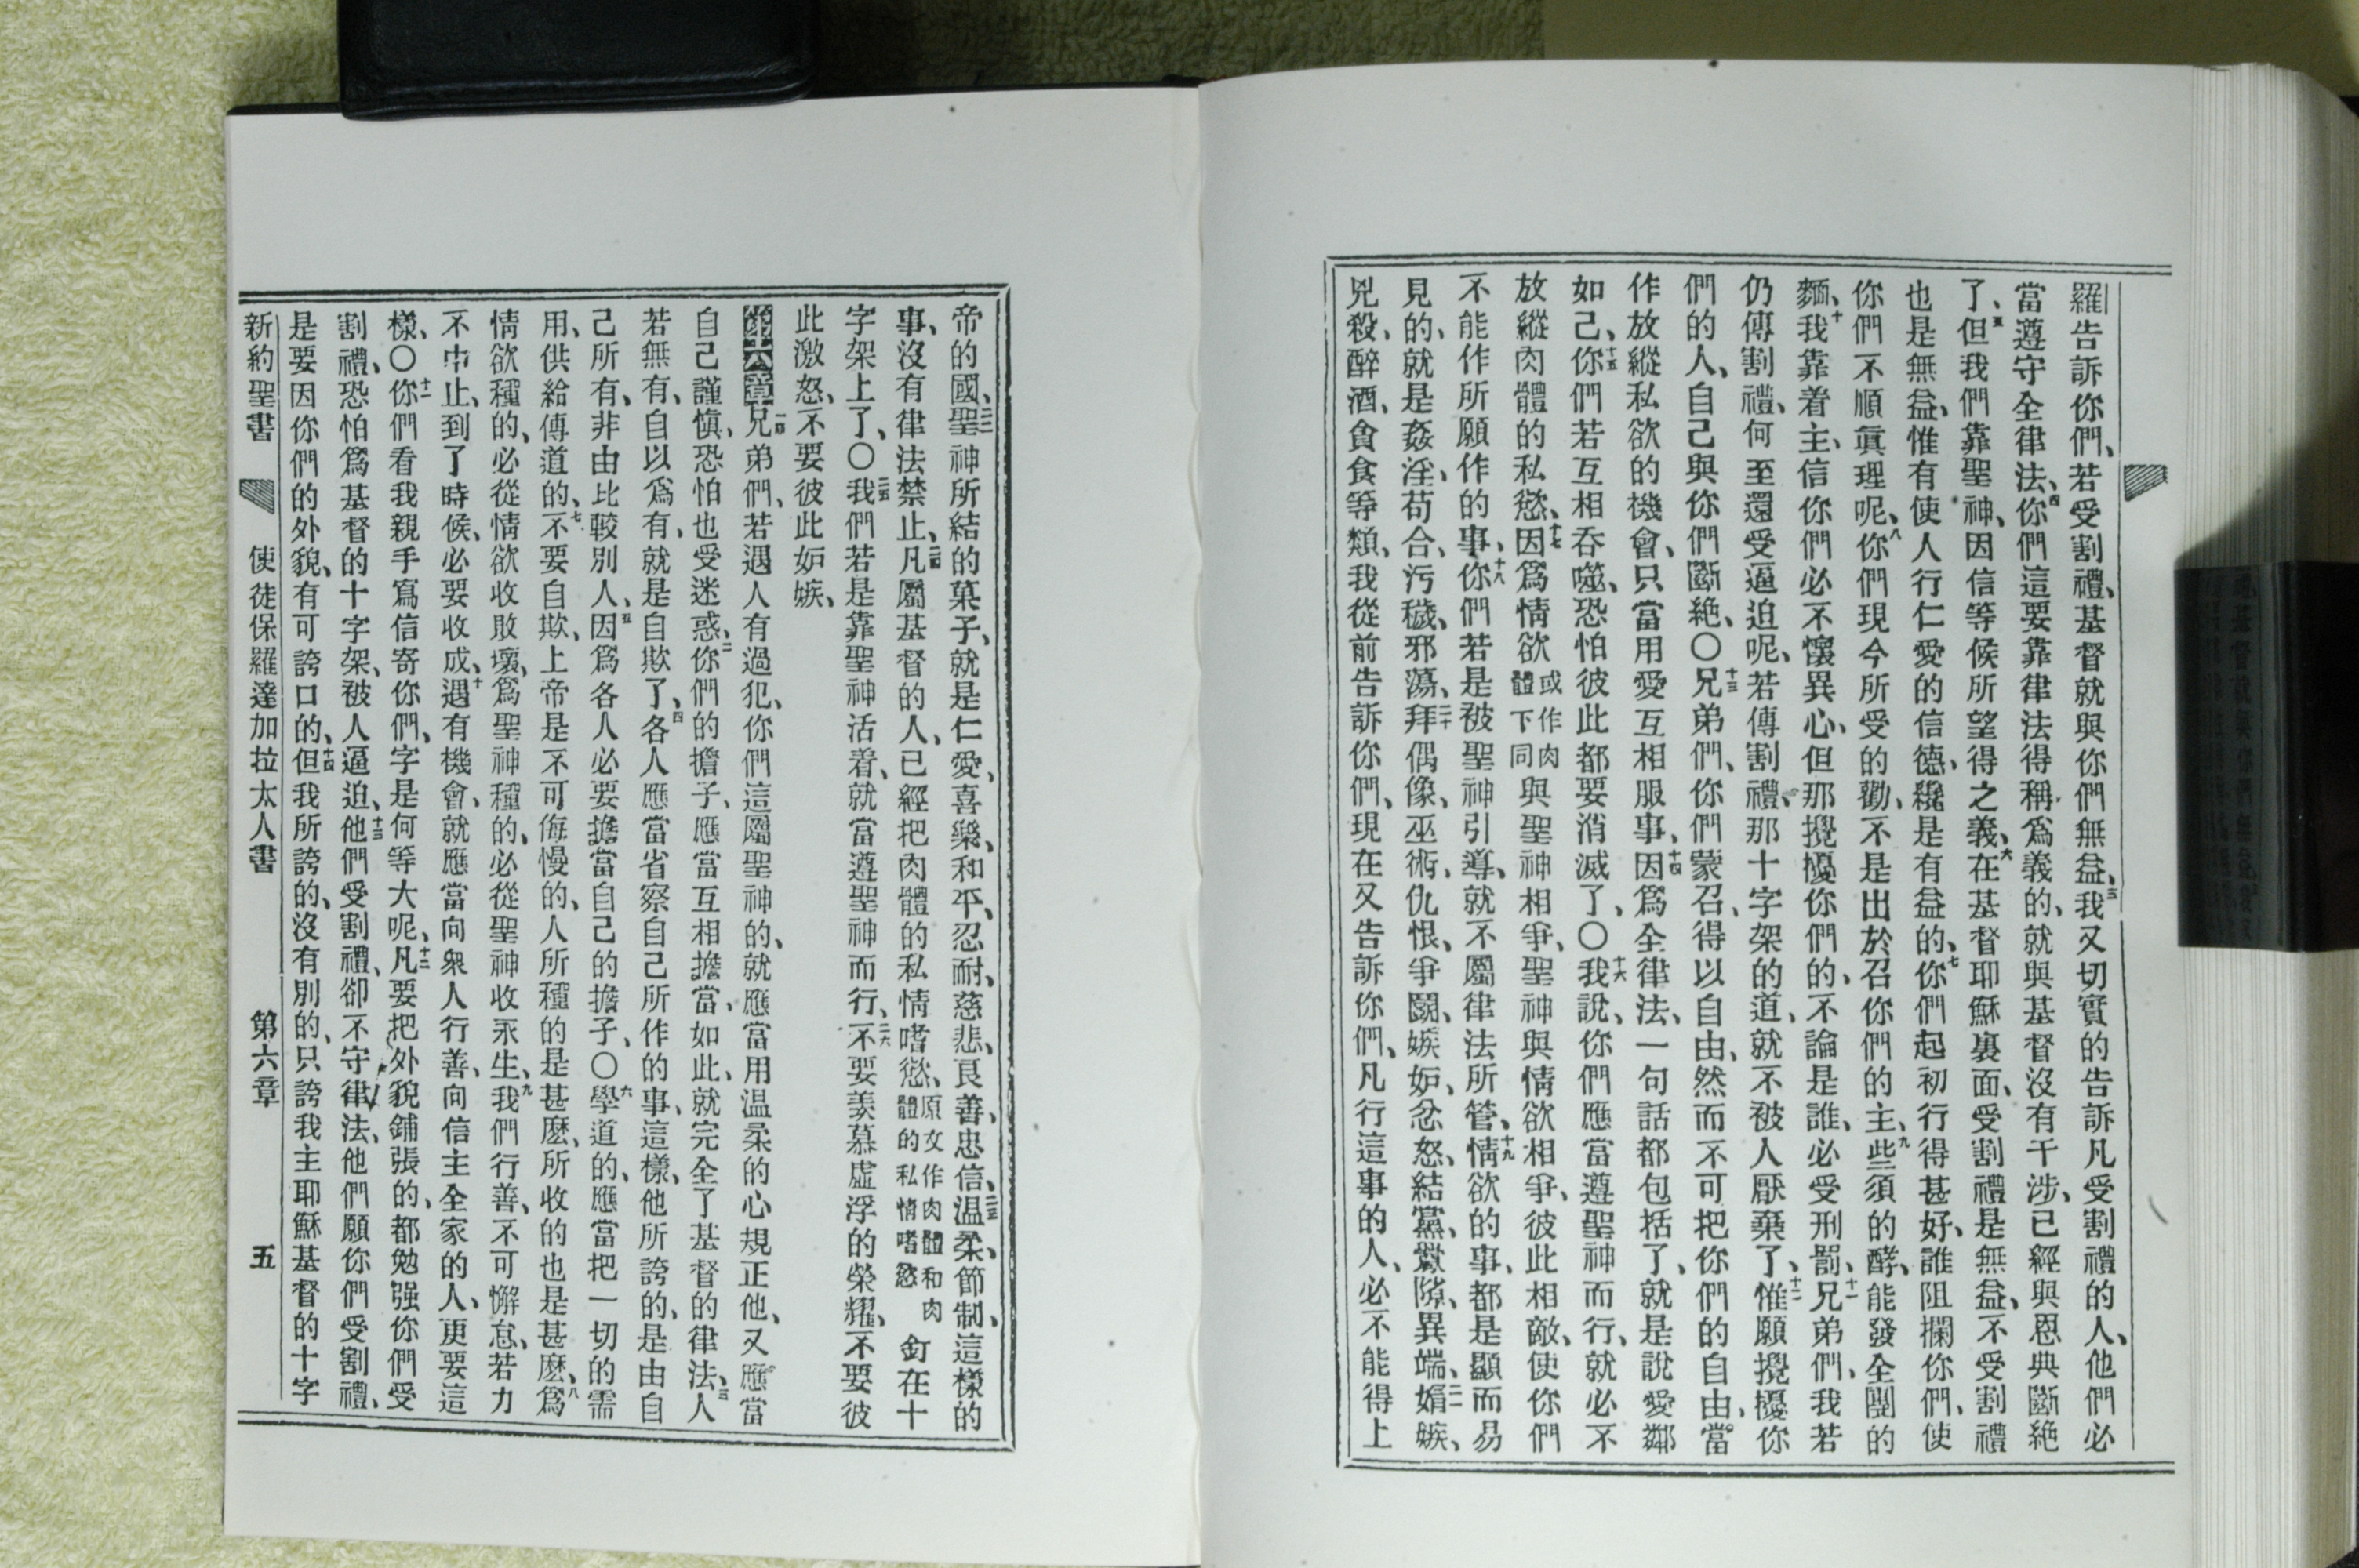 羅告訴你們、若受割禮、基督就與你們無益、三我又切實的告訴凡受割禮的人、他們必
當遵守全律法、四你們這要靠律法得稱爲義的、就與基督沒有干涉、已經與恩典斷絕
了、五但我們靠聖神、因信等候所望得之義、六在基督耶穌裏面、受割禮是無益、不受割禮
也是無益、惟有使人行仁愛的信德、纔是有益的、七你們起初行得甚好、誰阻攔你們、使
你們不順眞理呢、八你們現今所受的勸、不是出於召你們的主、九些須的酵、能發全團的
麵、十我靠着主、信你們必不懷異心、但那攪擾你們的、不論是誰、必受刑罰、十一兄弟們、我若
仍傳割禮、何至還受逼迫呢、若傳割禮、那十字架的道、就不被人厭棄了、十二惟願攪擾你
們的人、自己與你們斷絕、〇十三兄弟們、你們蒙召、得以自由、然而不可把你們的自由、當
作放縱私欲的機會、只當用愛互相服事、十四因爲全律法、一句話都包括了、就是說愛鄰
如己、十五你們若互相吞噬、恐怕彼此都要消滅了、〇十六我說、你們應當遵聖神而行、就必不
放縱肉體的私慾、十七因爲情欲或作肉體下同與聖神相爭、聖神與情欲相爭、彼此相敵、使你們
不能作所願作的事、十八你們若是被聖神引導、就不屬律法所管、十九情欲的事、都是顯而易
見的、就是姦淫、苟合、污穢、邪蕩、二十拜偶像、巫術、仇恨、爭鬭、嫉妒、忿怒、結黨、釁隙、異端、二一媢嫉、
兇殺、醉酒、貪食等類、我從前告訴你們、現在又告訴你們、凡行這事的人、必不能得上
帝的國、二二聖神所結的菓子、就是仁愛、喜樂、和平、忍耐、慈悲、良善、忠信、二三温柔、節制、這樣的
事、沒有律法禁止、二四凡屬基督的人、已經把肉體的私情嗜慾、原文作肉體和肉體的私情嗜慾釘在十
字架上了、〇二五我們若是靠聖神活着、就當遵聖神而行、二六不要羨慕虛浮的榮耀、不要彼
此激怒、不要彼此妬嫉、
第六章一節兄弟們、若遇人有過犯、你們這屬聖神的、就應當用温柔的心規正他、又應當
自己謹愼、恐怕也受迷惑、二你們的擔子、應當互相擔當、如此、就完全了基督的律法、三人
若無有、自以爲有、就是自欺了、四各人應當省察自己所作的事、這樣、他所誇的、是由自
己所有、非由比較別人、五因爲各人必要擔當自己的擔子、〇六學道的、應當把一切的需
用、供給傳道的、七不要自欺、上帝是不可侮慢的、人所種的是甚麽、所收的也是甚麽、八爲
情欲種的、必從情欲收敗壞、爲聖神種的、必從聖神收永生、九我們行善、不可懈怠、若力
不中止、到了時候、必要收成、十遇有機會、就應當向衆人行善、向信主全家的人、更要這
樣、〇十一你們看我親手寫信寄你們、字是何等大呢、十二凡要把外貌鋪張的、都勉强你們受
割禮、恐怕爲基督的十字架、被人逼迫、十三他們受割禮、卻不守律法、他們願你們受割禮、
是要因你們的外貌、有可誇口的、十四但我所誇的、沒有別的、只誇我主耶穌基督的十字
新約聖書 使徒保羅達加拉太人書 第六章 五